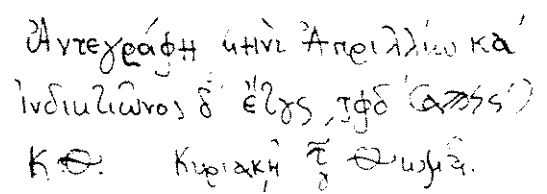 Ἀντεγράφη μηνὶ Ἀπριλλίου κα΄
ἰνδικτιῶνος δ΄ ἔτους ͵ςφδ΄
ΚΘ. Κυριακῇ τοῦ Θωμᾶ.